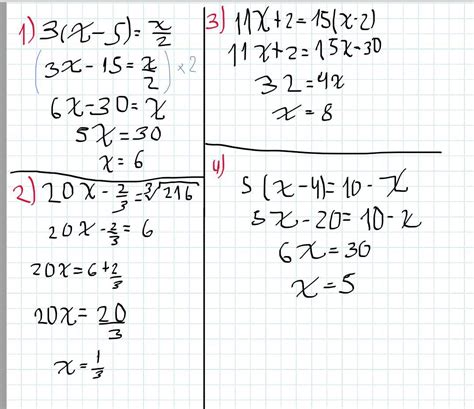 1) 3(x-5)=x/2
(3x-15=x/2)×2
6x-30=x
5x=30
x=6
2) 20x-2/3=∛216
20x-2/3=6
20x=6+2/3
20x=20/3
x=1/3
3) 11x+2=15(x-2)
11x+2=15x-30
32=4x
x=8
4)
5(x-4)=10-x
5x-20=10-x
6x=30
x=5